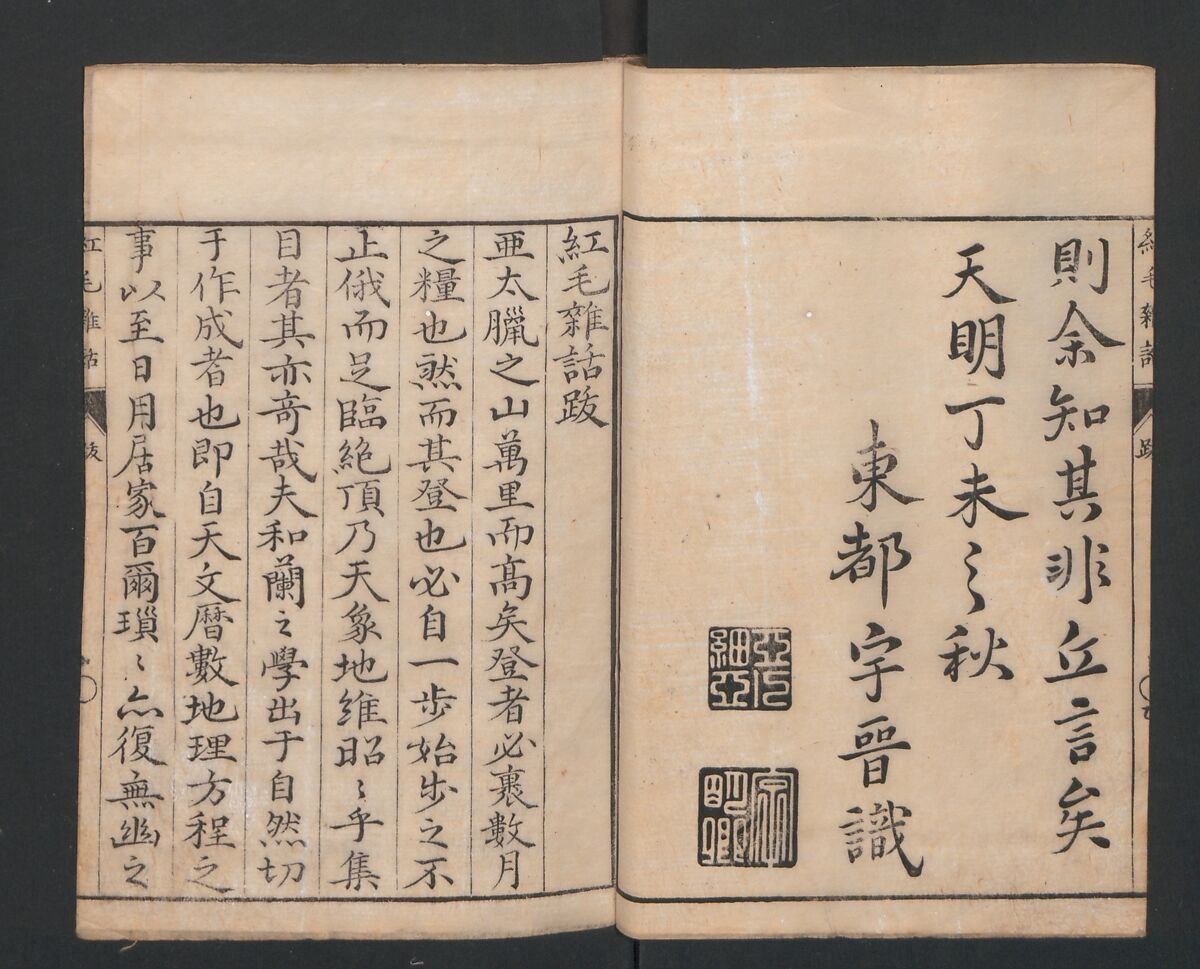 紅毛雜話
跋
則余知其非丘言矣
天明丁未之秋
東都宇晉識
紅毛雜話跋
亜太臘之山萬里而高矣登者必裹數月
之糧也然而其登也必自一步始步之不
止俄而足臨絶頂乃天象地維昭〻乎集
目者其亦奇哉夫和蘭之學出于自然切
于作成者也即自天文曆數地理方程之
事以至日用居家百爾瑣〻亦復無幽之
紅毛雜話
跋